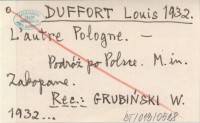 DUFFORT Louis 1932.
L'autre Pologne. –
Podróż po Polsce. M. in.
Zakopane.
Rec.: GRUBIŃSKI W.
1932...
BT/019/0528